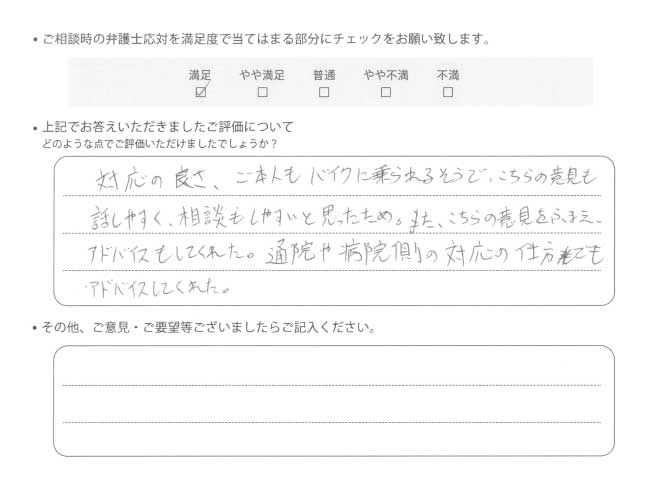 • ご相談時の弁護士応対を満足度で当てはまる部分にチェックをお願い致します。
満足 やや満足 普通 やや不満 不満
☑ □ □ □ □
• 上記でお答えいただきましたご評価について
どのような点でご評価いただけましたでしょうか？
対応の良さ、ご本人もバイクに乗られるそうで、こちらの意見も
話しやすく、相談もしやすいと思ったため。また、こちらの意見をふまえ、
アドバイスもしてくれた。通院や病院側の対応の仕方までも
アドバイスしてくれた。
• その他、ご意見・ご要望等ございましたらご記入ください。